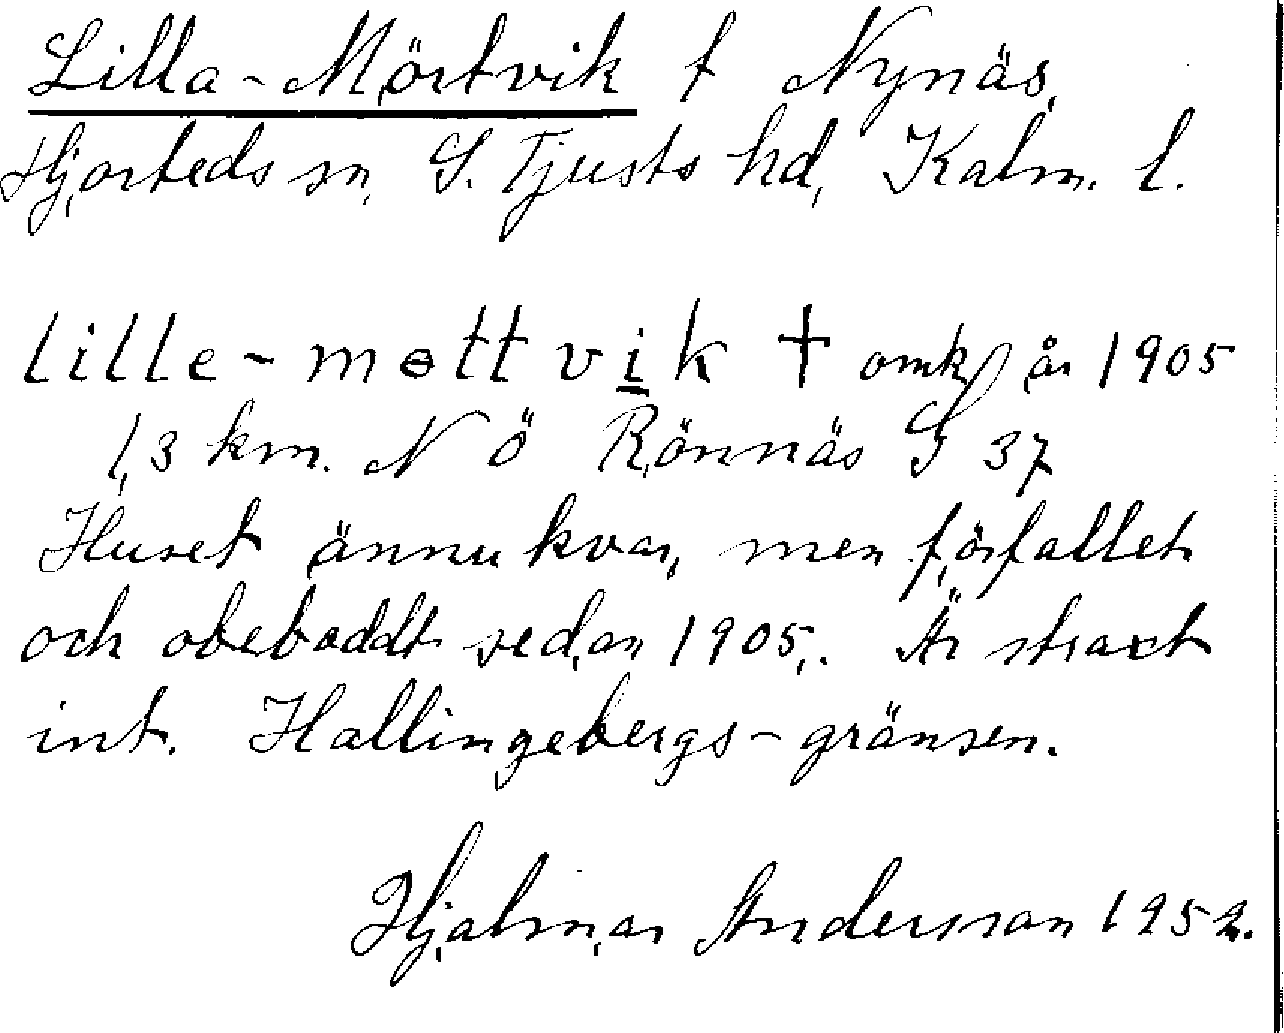 Lilla-Mörtvik t Nynäs,
Hjorteds sn, S. Tjusts hd, Kalm. l.
lille-mɵttvik † omkr år 1905
1,3 km. N Ö Rönnäs G 37
Huset ännu kvar, men förfallet
och obeboddt sedan 1905,. Är straxt
int. Hallingebergs-gränsen.
Hjalmar Andersson 1952.